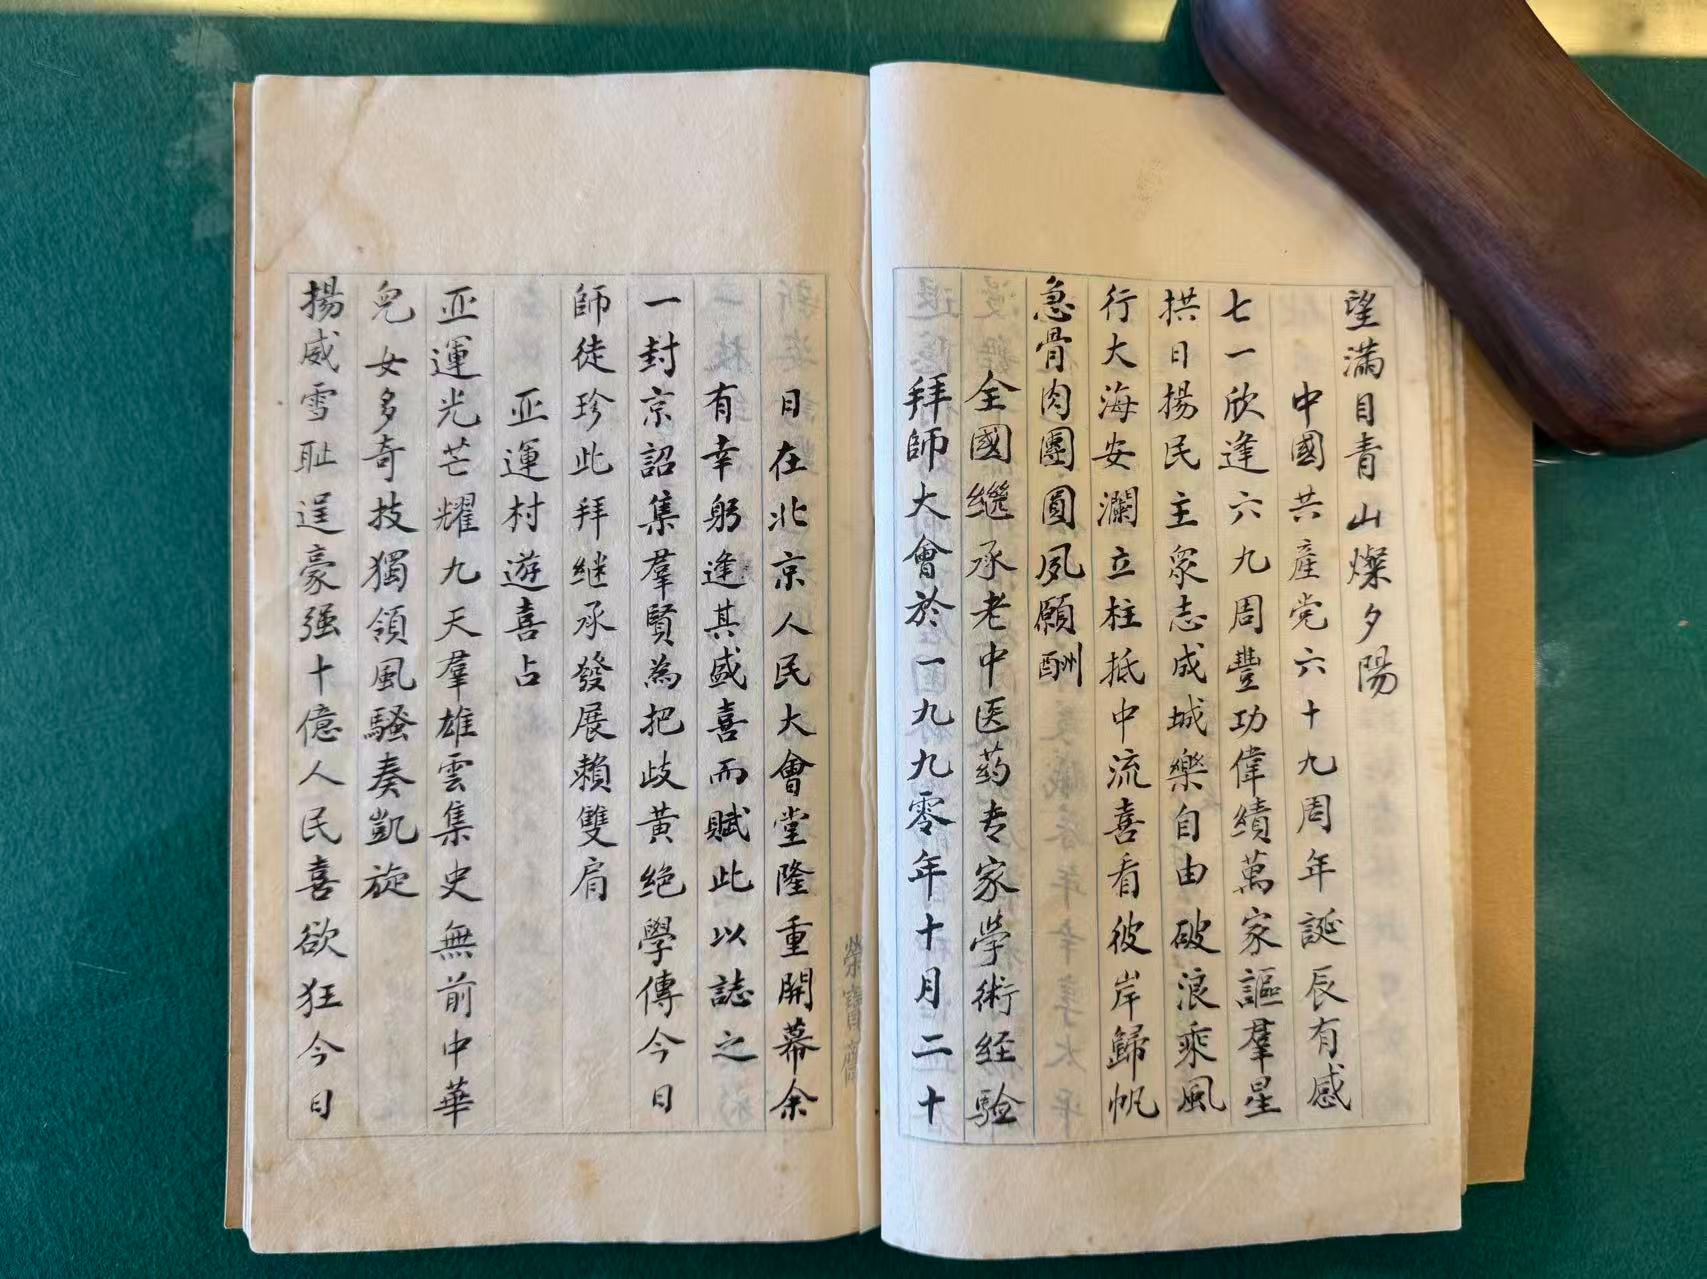 望滿目青山燦夕陽
中國共產党六十九周年誕辰有感
七一欣逢六九周豐功偉績萬家謳羣星
拱日揚民主眾志成城樂自由破浪乘風
行大海安瀾立柱抵中流喜看彼岸歸帆
急骨肉團圓夙願酬
全國繼承老中医药专家學術経驗
拜師大會於一九九零年十月二十
日在北京人民大會堂隆重開幕余
有幸躬逢其盛喜而賦此以誌之
一封京詔集羣賢為把歧黃绝學傳今日
師徒珍此拜継承發展賴雙肩
亚運村遊喜占
亚運光芒耀九天羣雄雲集史無前中華
兒女多奇技獨領風騷奏凱旋
揚威雪耻逞豪强十億人民喜欲狂今日
榮寶齋